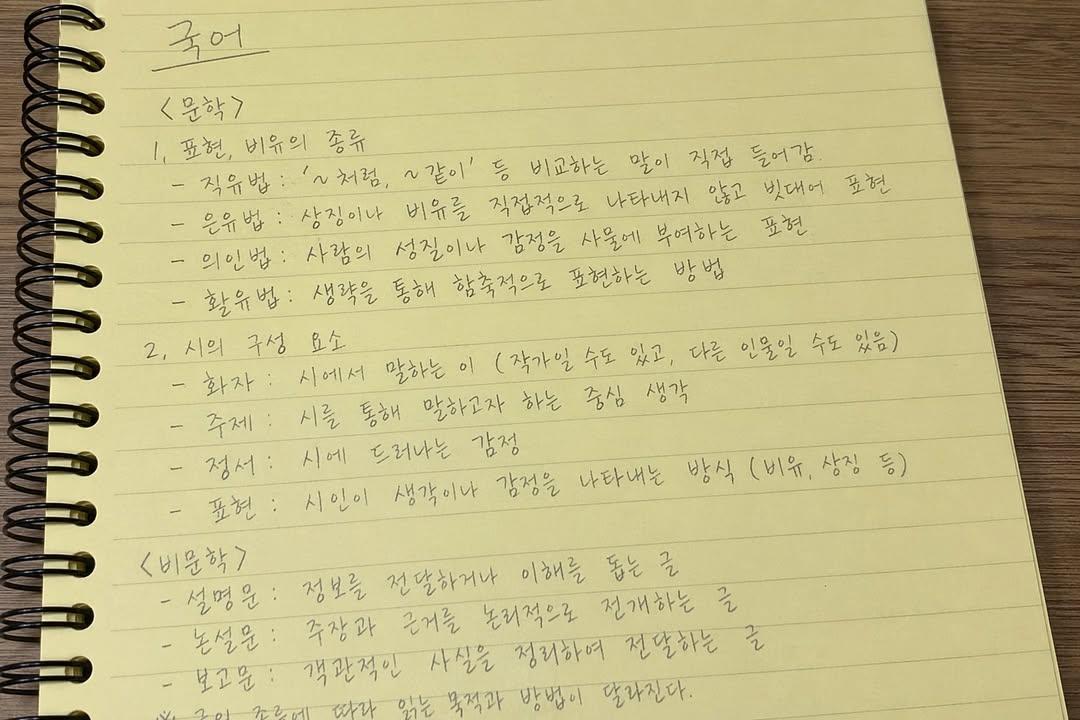 국어
<문학>
1. 표현, 비유의 종류
- 직유법 : '~처럼, ~같이' 등 비교하는 말이 직접 들어감.
- 은유법 : 상징이나 비유를 직접적으로 나타내지 않고 빗대어 표현
- 의인법 : 사람의 성질이나 감정을 사물에 부여하는 표현
- 활유법 : 생략을 통해 함축적으로 표현하는 방법
2. 시의 구성 요소
- 화자 : 시에서 말하는 이 (작가일 수도 있고, 다른 인물일 수도 있음)
- 주제 : 시를 통해 말하고자 하는 중심 생각
- 정서 : 시에 드러나는 감정
- 표현 : 시인이 생각이나 감정을 나타내는 방식 (비유, 상징 등)
<비문학>
- 설명문 : 정보를 전달하거나 이해를 돕는 글
- 논설문 : 주장과 근거를 논리적으로 전개하는 글
- 보고문 : 객관적인 사실을 정리하여 전달하는 글
※ 글의 종류에 따라 읽는 목적과 방법이 달라진다.